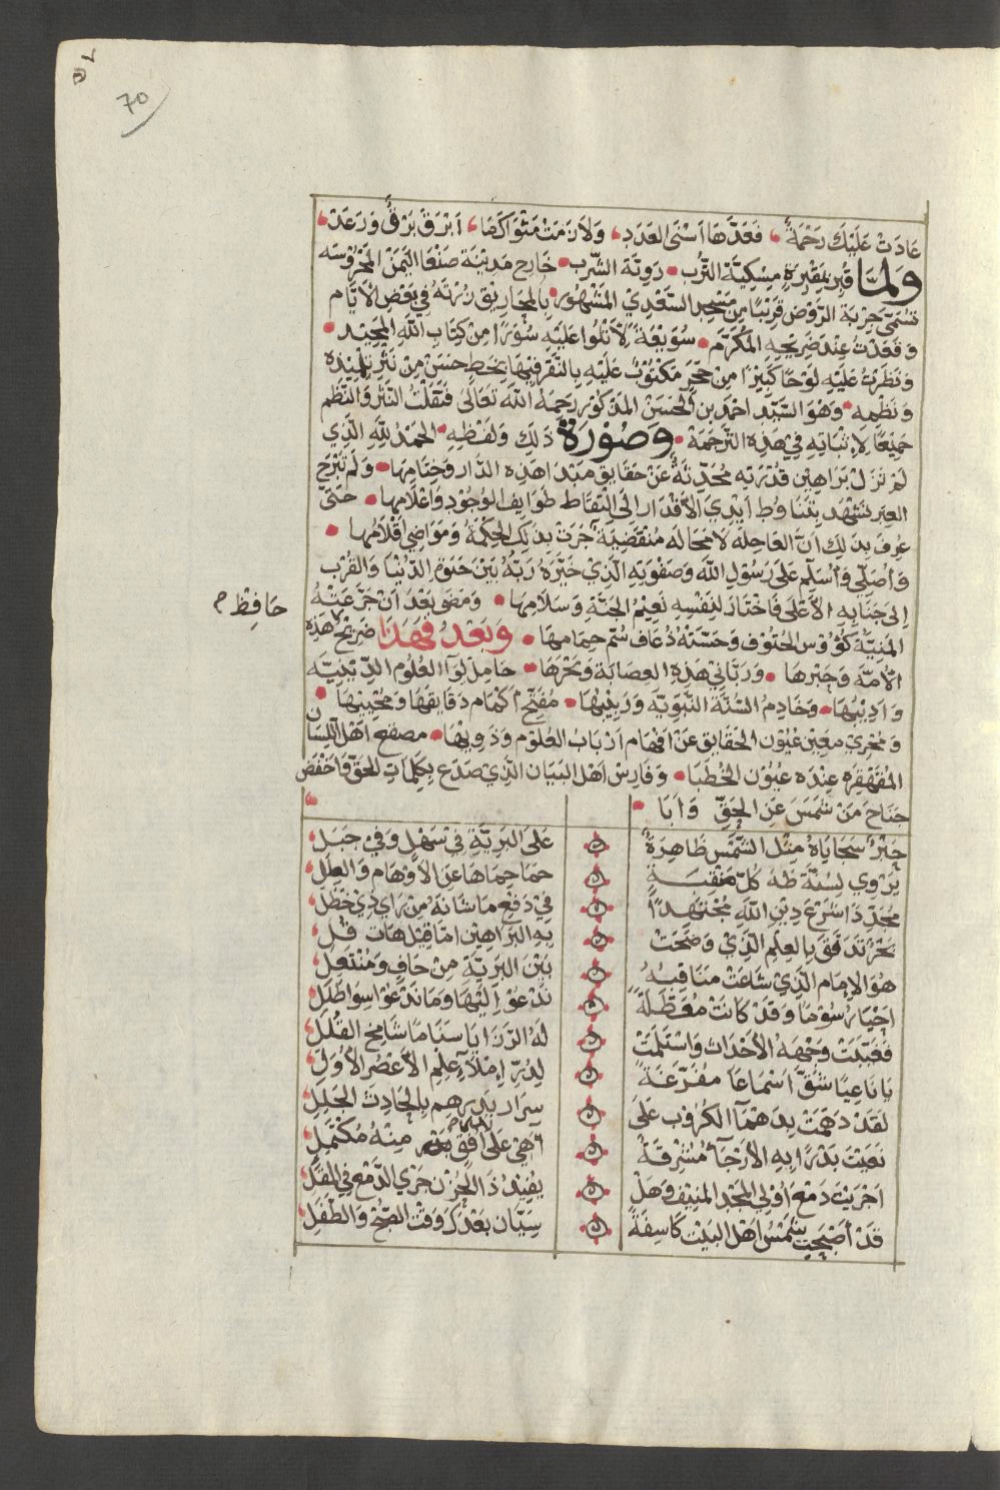 70
عَادَتْ عَلَيْكَ رَحْمَةً، فَعَدُّهَا أَسْنَى العَدَدِ، وَلَازَمَتْ مَثْوَاكَ مَا، أَبْرَقَ بَرْقٌ وَرَعَدْ
وَلَمَّا قُبِرَ بِمَقْبَرَةِ مِسْكِيَّةَ التُّرْبِ خَارِج مَدِينَة صَنْعَا اليَمَنْ المَحْرُوسَه
تُسَمَّى خِزْبَة الرَّوْض قَرِيبًا مِنْ مَسْجِدِ السَّعْدِيْ المَشْهُور زُرْتُهُ فِي بَعْضِ الأَيَّام
وَقَعَدْتُ عِنْدَ ضَرِيْحِهِ المُكَرَّمِ سُوَيْعَةً لِأَتْلُوا عَلَيْهِ سُوَرًا مِنْ كِتَابِ اللهِ المَجِيْد
وَنَظَرْتُ عَلَيْهِ لَوْحًا كَبِيْرًا مِنْ حَجَرٍ مَكْتُوْبٌ عَلَيْهِ بِالنَّقْرِ فِيْهَا بِخَطٍ حَسَنْ مِنْ نَثْرِ تِلْمِيْذِهِ
وَنَظْمِه وَهُوَ السَّيِّد احْمَد بن الحَسَنْ المَذكُوْر رَحِمَهُ اللهُ تَعَالَى فَنَقَلْتُ النَّثْرَ وَالنَّظْم
جَمِيْعًا لِإِثْبَاتِهِ فِيْ هَذِهِ التَّرْجَمَة وَصُوْرَةُ ذَلِكَ وَلَفْظِهِ الحَمْدُ لِلّهِ الَّذِي
لَمْ تَزَلْ بَرَاهِيْن قُدْرَتِهِ مُحَدِّثَةٌ عَنْ حَقَايِقِ مَبْدَا هَذِهِ الدَّار وَخِتَامِهَا وَلَمْ تَبْرَحِ
العِبَر تَشْهَد بِتَنَاوُط أَيْدِي الأَقْدَار إِلَى التِقَاط طَوَايِف الوُجُوْدِ وَاعْلَامِهَا حَتَّى
عُرِفَ بِذَلِكَ أَنَّ العَاجِلَه لَا مَحَالَه مُنْقَضِيَة جَرَتْ بِذَلِكَ الحِكْمَة وَمَوَاضِي أَقْلَامُهَا
وَأُصَلِّي وَأُسَلِّم عَلَى رَسُوْلِ اللهِ وَصَفْوَتِهِ الَّذِيْ خَيَّرَهُ رَبُّهُ بَيْنَ الدُّنْيَا وَالقُرْب
إِلَى جَنَابِهِ الأَعْلَى فَاخْتَارَ لِنَفْسِهِ نَعِيْمَ الجَنَّةِ وَسَلَامِهَا وَمَضَى بَعْدَ أَنْ جَرَّعَتْهُ
حَافِظ
المَنِيَّةُ كُؤُوْس الحُتُوْف وَحَسَّتهُ ذُعَاف سُمّ حِمَامهَا وَبَعْدُ فَهَذَا ضَرِيْحُ هَذِهِ
الأُمَّة وَحَبْرهَا وَرَبَّانِيْ هَذِهِ العِصَابَة وَبَحْرهَا حَامِلَ لِوَآ العُلُوْم الدِّيْنِيَّه
وَادِيْبُهَا وَخَادِمُ السُّنَّة النَّبَوِيَّة وَرَبِيْبُهَا مُفَتِّح أَكْمَام دَقَايِقهَا وَمُجِيْبِهَا
وَمُجْرِي مَعِيْن عُيُوْن الحَقَايِق عَنْ افْهَام ارْبَابِ العُلُوْم وَذَوِيْهَا مصقع اهْل اللِّسَان
المُقَهْقِرَه عِنْدَه عُيُوْن الخُطَبَا وَفَارِس اهْل البَيَان الَّذِيْ صَدَعَ بِكَلِمَاتِ الحَقِّ وَاخْفَضَ
جَنَاحَ مَنْ شَمَسَ عَنِ الحَقِّ وَابَا
حَبْرٌ سَجَايَاهُ مِثْل الشَّمْس ظَاهِرَةٌ عَلَى البَرِيَّةِ فِي سَهْلٍ وَفِي جَبَل
يَرْوِي لِسُنَّة طَهَ كُلّ مَنْقَبَةٍ حَمَا حِمَاهَا عَنِ الأَوْهَام وَالعِلَلِ
مُجَدِّدًا شَرْعَ دِيْن اللهِ مُجْتَهِدًا فِيْ دَفْعِ مَا شَانَهُ مِنْ رَاي ذِيْ خَطَلِ
بَحْرٌ تَدَفَّقَ بِالعِلْمِ الَّذِيْ وَضَحَتْ بِهِ البَرَاهِيْن امَّا قِيْل هَاتِ قُلِ
هُوَ الإِمَام الَّذِي شَاعَتْ مَنَاقِبُهُ بَيْنَ البَرِيَّةِ مِنْ حَافٍ وَمُنْتَعِلِ
اخْيَا رُسُوْمًا وَقَدْ كَانَتْ مُعَطَّلَةً نَدْعُوْ إِلَيْهَا وَمَا نَدْعُوْا سِوَا طَلَلِ
فَقَبَّلَتْ وَجْهَهُ الأَحْدَاث وَاسْتَلَمَتْ لَهُ الرَّزَايَا سَنَامًا شَامِخَ القُلَلِ
يَا نَاعِيًا شَقَّ اسْمَاعًا مُفَزَّعَةً لِدُرِّ إِمْلَاءِ عِلْمِ الأَعْصُرِ الأُوَلِ
لَقَدْ دَهَمَتْ بِدَهْمَآ الكُرُوْبِ عَلَى سِرَارِ بَدْرِهِم بِالحَادِثِ الجَلَلِ
نَعَيْتَ بَدْرًا بِهِ الأَرْجَآ مُشْرِقَةٌ مِنْهُ مُكْتَمَلِ
اجْرَيْتَ دَمْعَ أُوْلِي المَجْدِ المُنِيْفِ وَهَلْ يُفِيْدُ ذَا الحُزْنِ جَرْي الدَّمْعِ فِي المُقَلِ
قَدْ أَصْبَحَتْ شَمْسُ اهْلِ البَيْتِ كَاسِفَةً سِيَّان بَعْدَكَ وَقْت الصُّبْحِ وَالطَّفَلِ